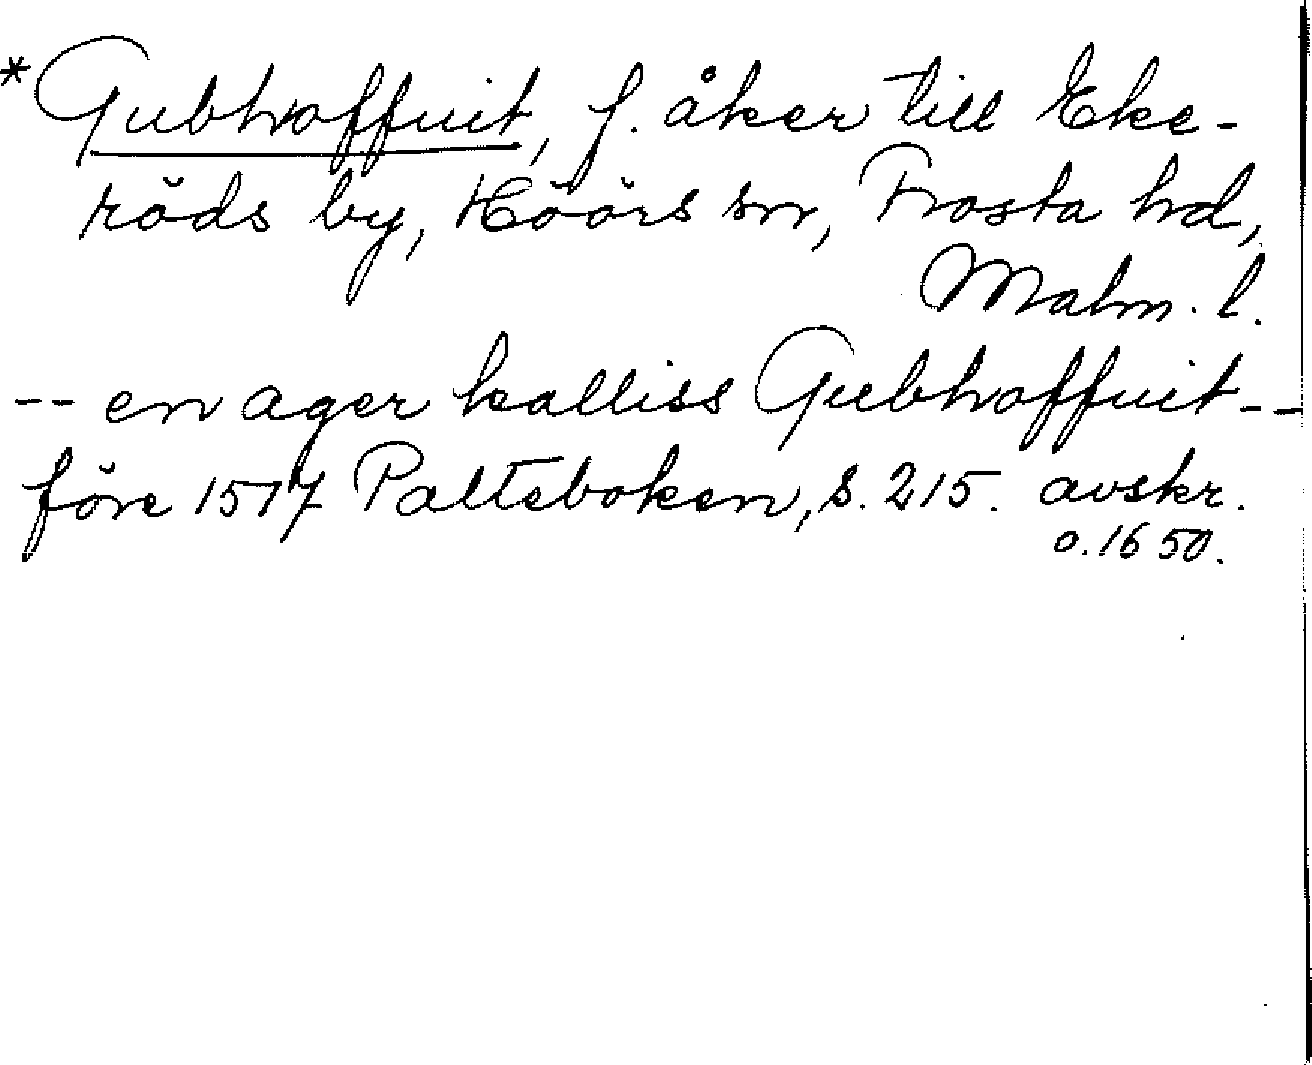 *Gubhoffuit, f. åker till Eke-
röds by, Höörs sn, Frosta hd,
Malm. l.
-- en ager kalliss Gubhoffuit--
före 1517 Palteboken, s. 215. avskr.
o. 1650.